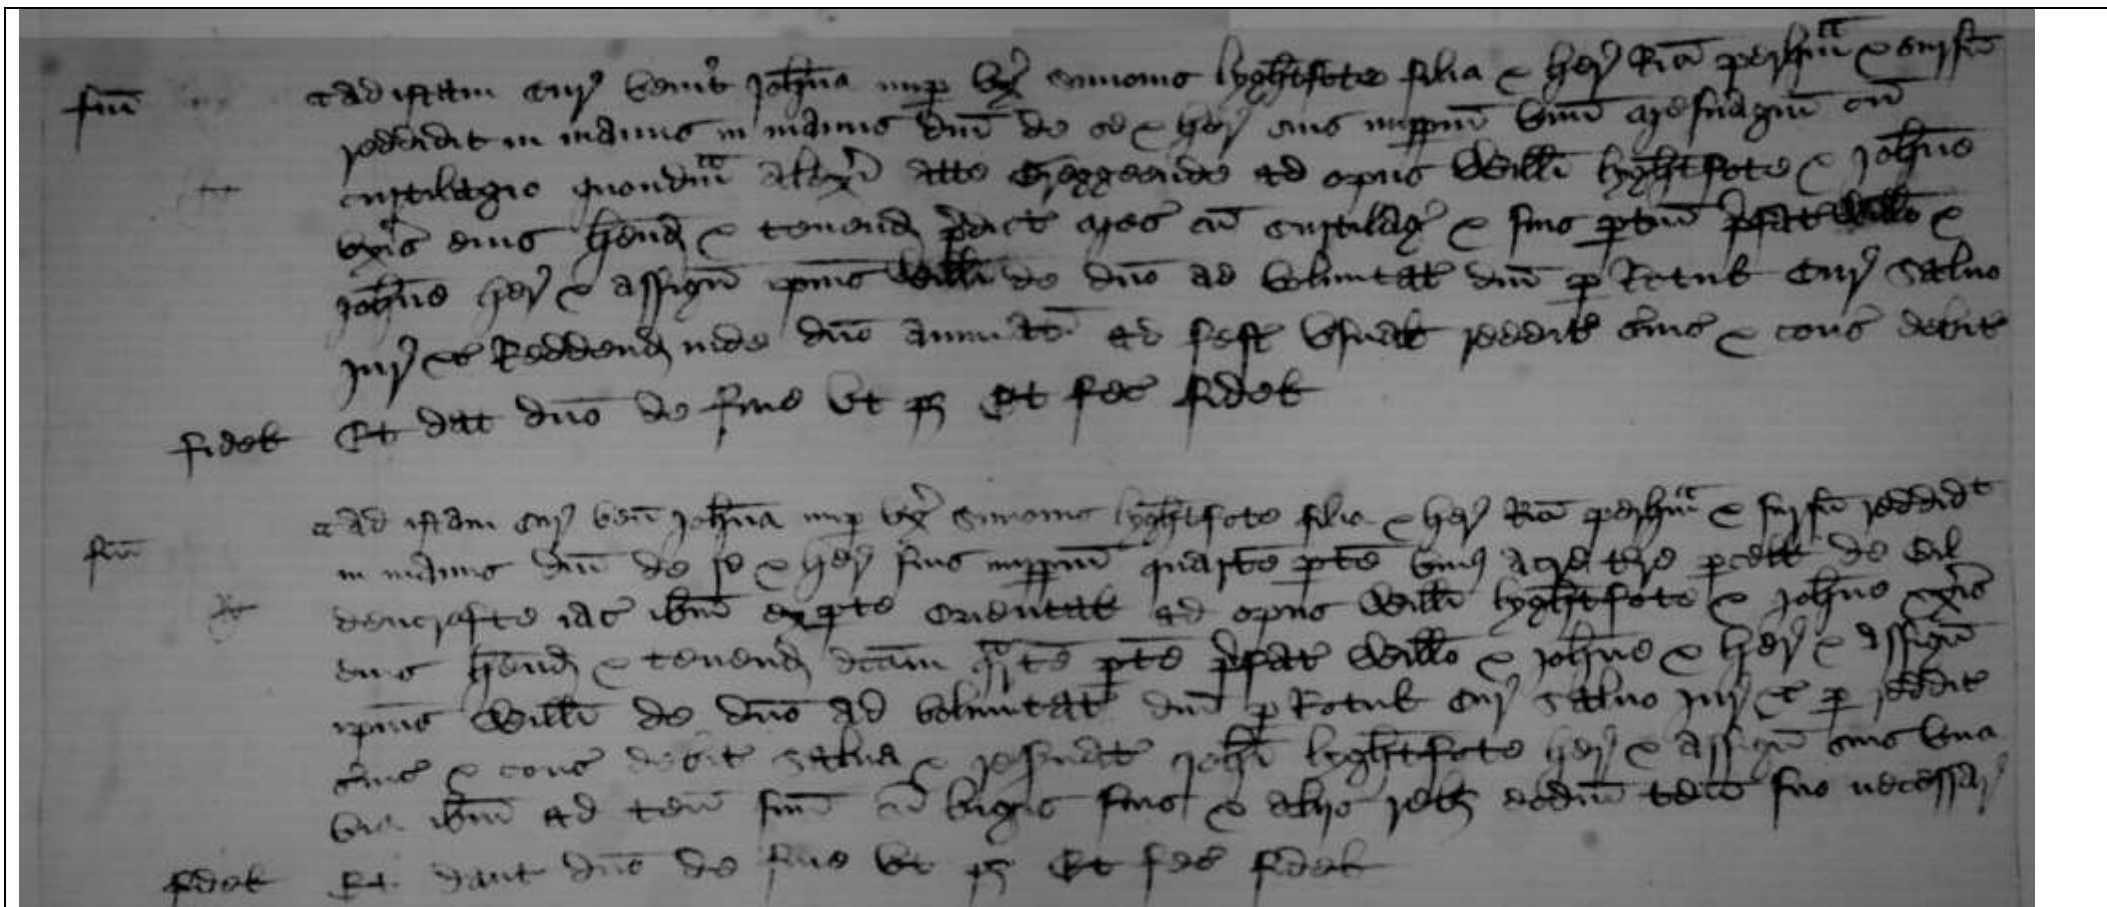 fin̄ Ad istam Cur̄ venit Joħna nup̄ vx̄ Simonis lyghtfote filia & her̄ Ric̄ & sursū
reddidit in manus in manus dn̄i de se & her̄ suis imppm̄ vnū mesuagiū cū
curtilagio quondm̄ Alex̄ atte ad opus Willi lyghtfote & Joħne
vxīs eius hend̄ & tenend̄ p̄dict̄ mes̄ cū curtilaḡ & suis ptin̄ p̄fat̄ Willo &
Joħne her̄ & assign̄ ip̄ius Willi de dn̄o ad voluntat̄ dn̄i p Rotul̄ Cur̄ Saluo
jur̄ &c Reddend̄ inde dn̄o annuatī ad fest̄ vsual̄ reddit̄ s̄uic̄ & cons̄ debit̄
fidel̄ Et dat dn̄o de fine vt p3 Et fec̄ fidel̄
Ad istam Cur̄ ven̄ Joħna nup̄ vx̄ Simonis lyghtfote filia & her̄ Ric̄ & sursū reddidt
fin̄ in manus dn̄i de se & her̄ suis imppm̄ quartē ptē vnī acre t̄re pcell̄ de
iac̄ ibm̄ ex pte oriental̄ ad opus Willi lyghtfote & Joħne vxīs
eius hend̄ & tenend̄ dc̄am q̄rtē ptē p̄fat̄ Willo & Joħne & her̄ & assign̄
ip̄ius Willi de dn̄o ad voluntat̄ dn̄i p Rotul̄ Cur̄ Saluo jur̄ &c p reddit̄
s̄uic̄ & cons̄ debit̄ Salua & res̄uat̄ Joħi lyghtfote her̄ & assign̄ suis vna
via ibm̄ ad ten̄ suū cū bigis suis & alijs reb3 eidm̄ ten̄to suo necessar̄
fidel̄ Et dant dn̄o de fine vt p3 Et fec̄ fidel̄